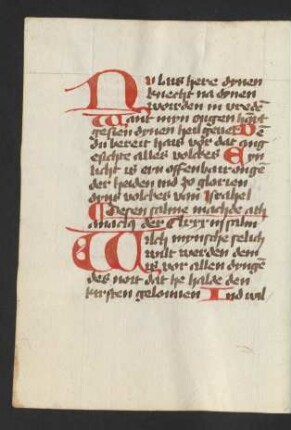 Nu lais here dynen
knecht na dynen
worden in vrede
Want myn ougen haint
gesien dynen heil geuer De
du bereit hais vor dat ang
esichte alles volckes Eyn
licht is eyn offenbaironge
der heiden ind zo glorien
dyns volckes van Israhel
Desen salme machde ath
anaci9 der Cxxxii salm
Wilch mynsche selich
wilt werden dem
is vor allen dynge
des noit dat he halde den
kirsten gelouuen Ind wil